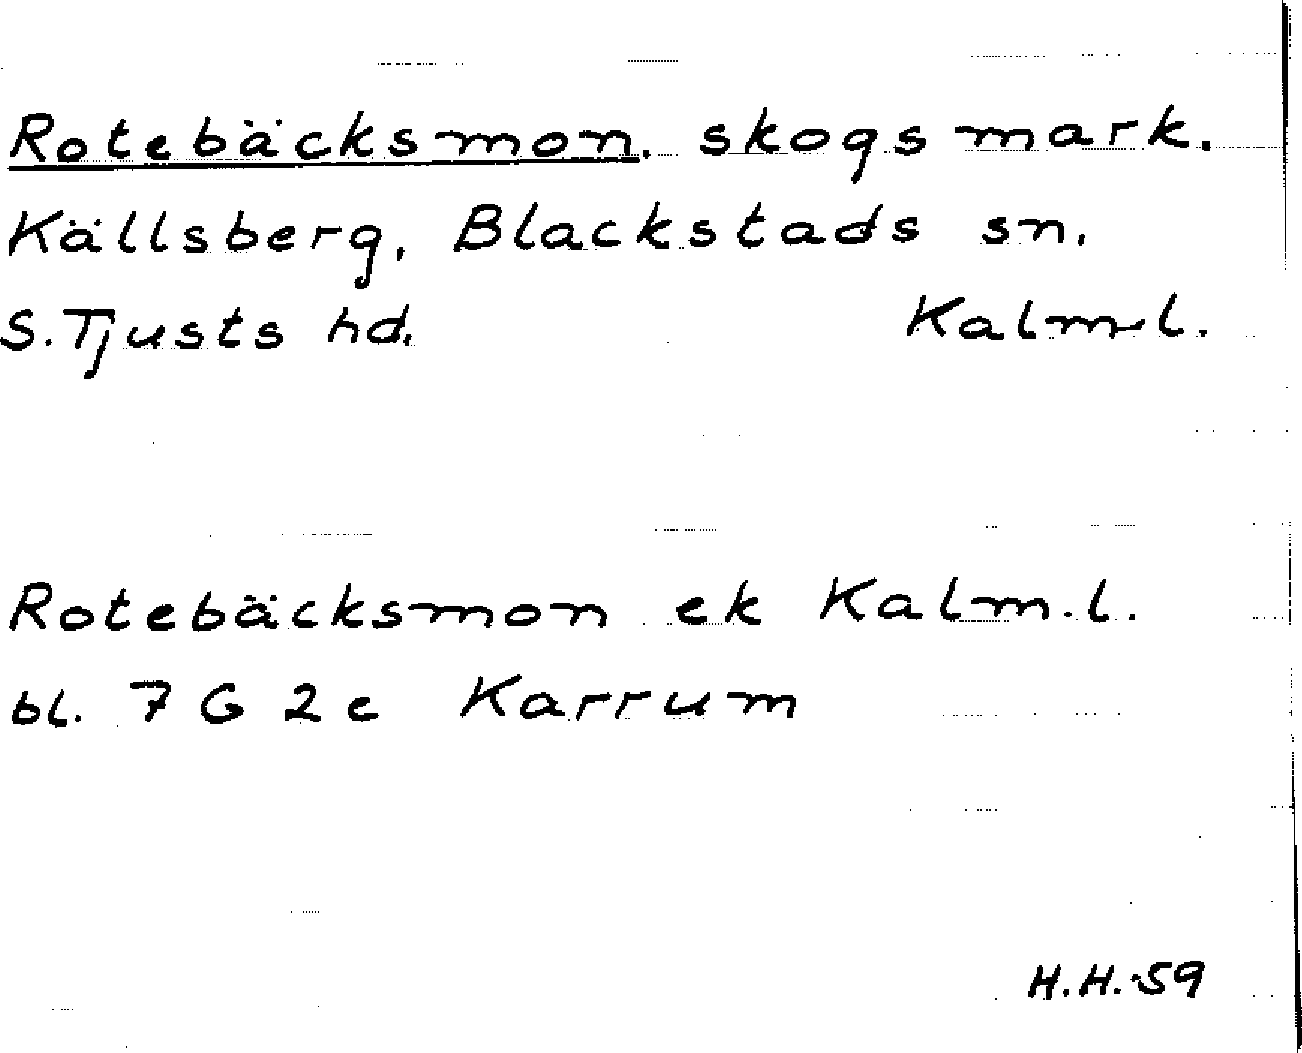 Rotebäcksmon, skogsmark.
Källsberg, Blackstads sn.
S. Tjusts hd. Kalm.l.
Rotebäcksmon ek Kalm.l.
bl. 7 G 2 e Karrum
H.H.59